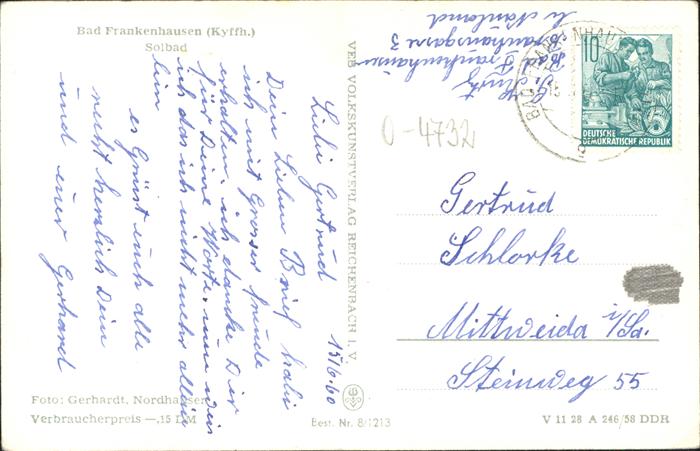 Bad Frankenhausen (Kyffh.)
Solbad
15/6.60
Liebe Gertrud
Dein Lieben Brief habe
ich mit Groser freude
erhalten. ich danke Dir
für Deine Worte. nun weis
ich das ich nicht mehr allein
bin
es Grüst euch alle
recht herzlich Dein
und euer Gerhard
Foto: Gerhardt, Nordhausen
Verbraucherpreis —,15 DM
VEB VOLKSKUNSTVERLAG REICHENBACH I. V.
Best. Nr. 8/1213
G. Kurtz
Bad Frankenhausen
3
10
DEUTSCHE
DEMOKRATISCHE REPUBLIK
BAD FRANKENHAUSEN
0-4732
Gertrud
Schlorke
Mittweida i/Sa.
Steinweg 55
V 11 28 A 246/58 DDR